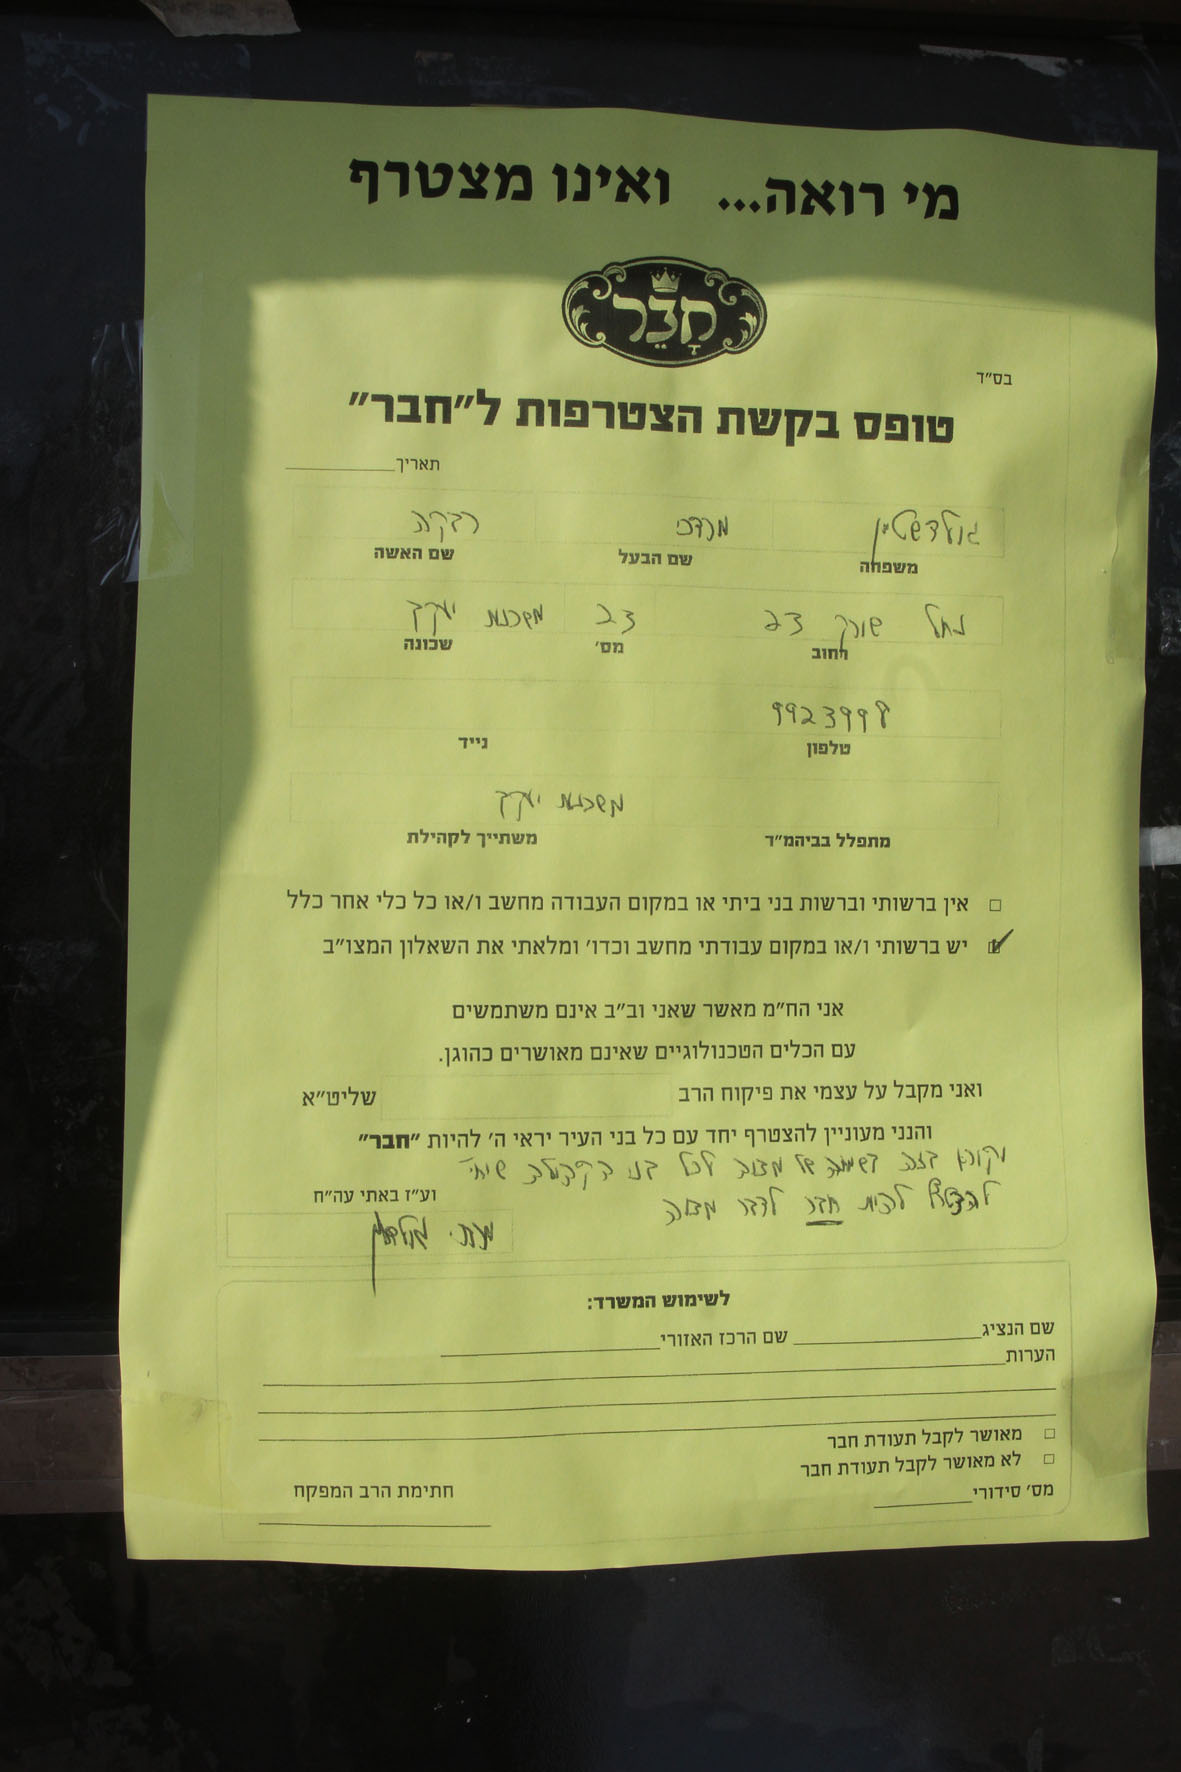 מי רואה... ואינו מצטרף
חָבֵר
בס"ד
טופס בקשת הצטרפות ל"חבר"
תאריך
גולדשטיין מרדכי רבקה
משפחה שם הבעל שם האשה
נחל שורק 23 23 משכנות יעקב
רחוב מס' שכונה
9923998
טלפון נייד
משכנות יעקב
מתפלל בביהמ"ד משתייך לקהילת
אין ברשותי וברשות בני ביתי או במקום העבודה מחשב ו/או כל כלי אחר כלל
יש ברשותי ו/או במקום עבודתי מחשב וכדו' ומלאתי את השאלון המצו"ב
אני הח"מ מאשר שאני וב"ב אינם משתמשים
עם הכלים הטכנולוגיים שאינם מאושרים כהוגן.
ואני מקבל על עצמי את פיקוח הרב שליט"א
והנני מעוניין להצטרף יחד עם כל בני העיר יראי ה' להיות "חבר"
וקורא בזה בשמחה של מצוה לכל בני הקהילה שיחי'
להצטרף להיות חבר לדבר מצוה
וע"ז באתי עה"ח
מרדכי גולדשטיין
לשימוש המשרד:
שם הנציג שם הרכז האזורי
הערות
מאושר לקבל תעודת חבר
לא מאושר לקבל תעודת חבר
מס' סידורי חתימת הרב המפקח